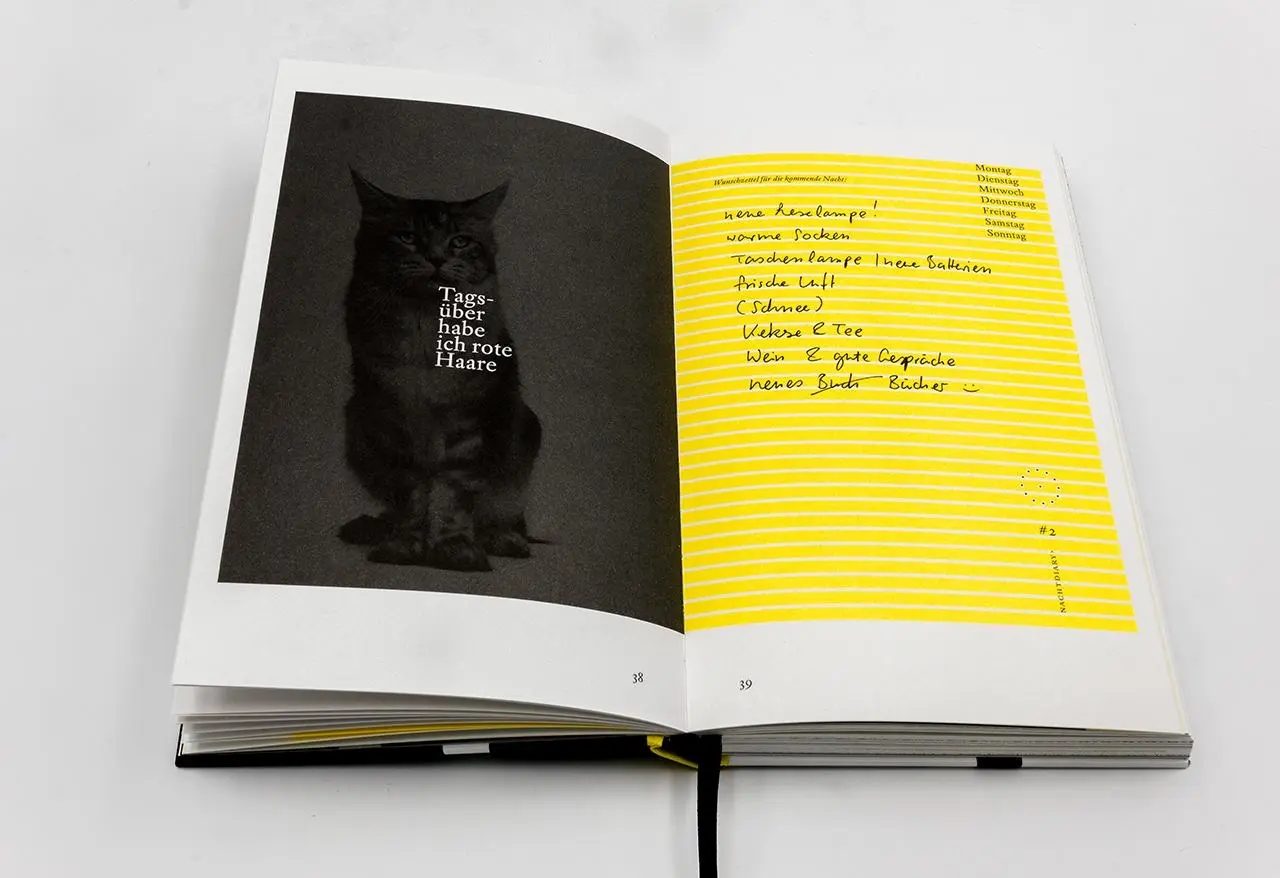 Tags-
über
habe
ich rote
Haare
38
Wunschzettel für die kommende Nacht:
Montag
Dienstag
Mittwoch
Donnerstag
Freitag
Samstag
Sonntag
neue Leselampe!
warme Socken
Taschenlampe / neue Batterien
frische Luft
(Schnee)
Kekse & Tee
Wein & gute Gespräche
neues Buch Bücher :)
#2
NACHTDIARY›
39